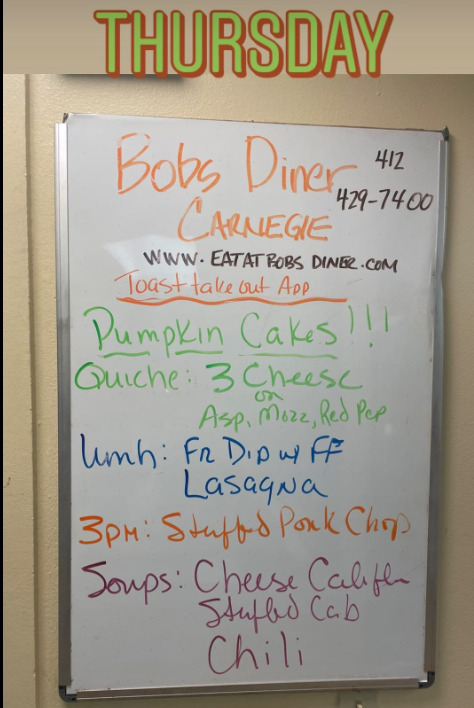 THURSDAY
Bobs Diner 412
429-7400
CARNEGIE
WWW.EATATBOBSDINER.COM
Toast take out App
Pumpkin Cakes!!!
Quiche: 3 Cheese
or
Asp, Mozz, Red Pep
Lunch: FR Dip w/ FF
LASAGNA
3PM: Stuffed Pork Chop
Soups: Cheese
Stuffed Cab
Chili